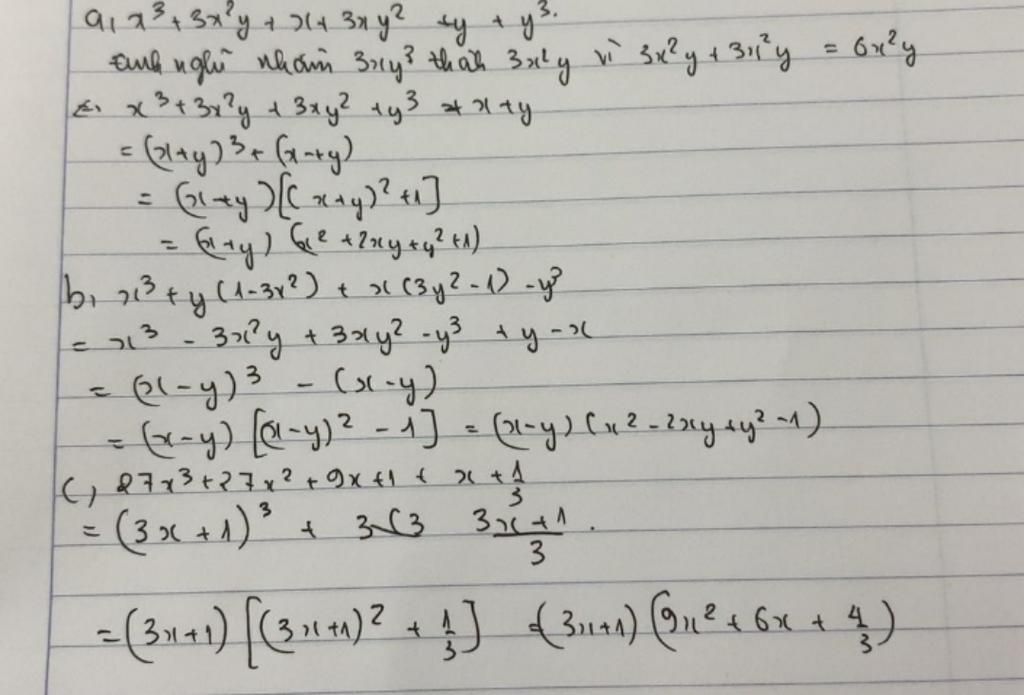 a, x³ + 3x²y + x + 3xy² + y + y³.
anh nghĩ nhầm 3xy³ thành 3x²y vì 3x²y + 3x²y = 6x²y
x³ + 3x²y + 3xy² + y³ + x + y
= (x+y)³ + (x+y)
= (x+y)[(x+y)² + 1]
= (x+y)(x² + 2xy + y² + 1)
b, x³ + y(1-3x²) + x(3y²-1) - y³
= x³ - 3x²y + 3xy² - y³ + y - x
= (x-y)³ - (x-y)
= (x-y)[(x-y)² - 1] = (x-y)(x² - 2xy + y² - 1)
c, 27x³ + 27x² + 9x + 1 + x + 1/3
= (3x+1)³ + (3x+1)/3.
= (3x+1)[(3x+1)² + 1/3] = (3x+1)(9x² + 6x + 4/3)